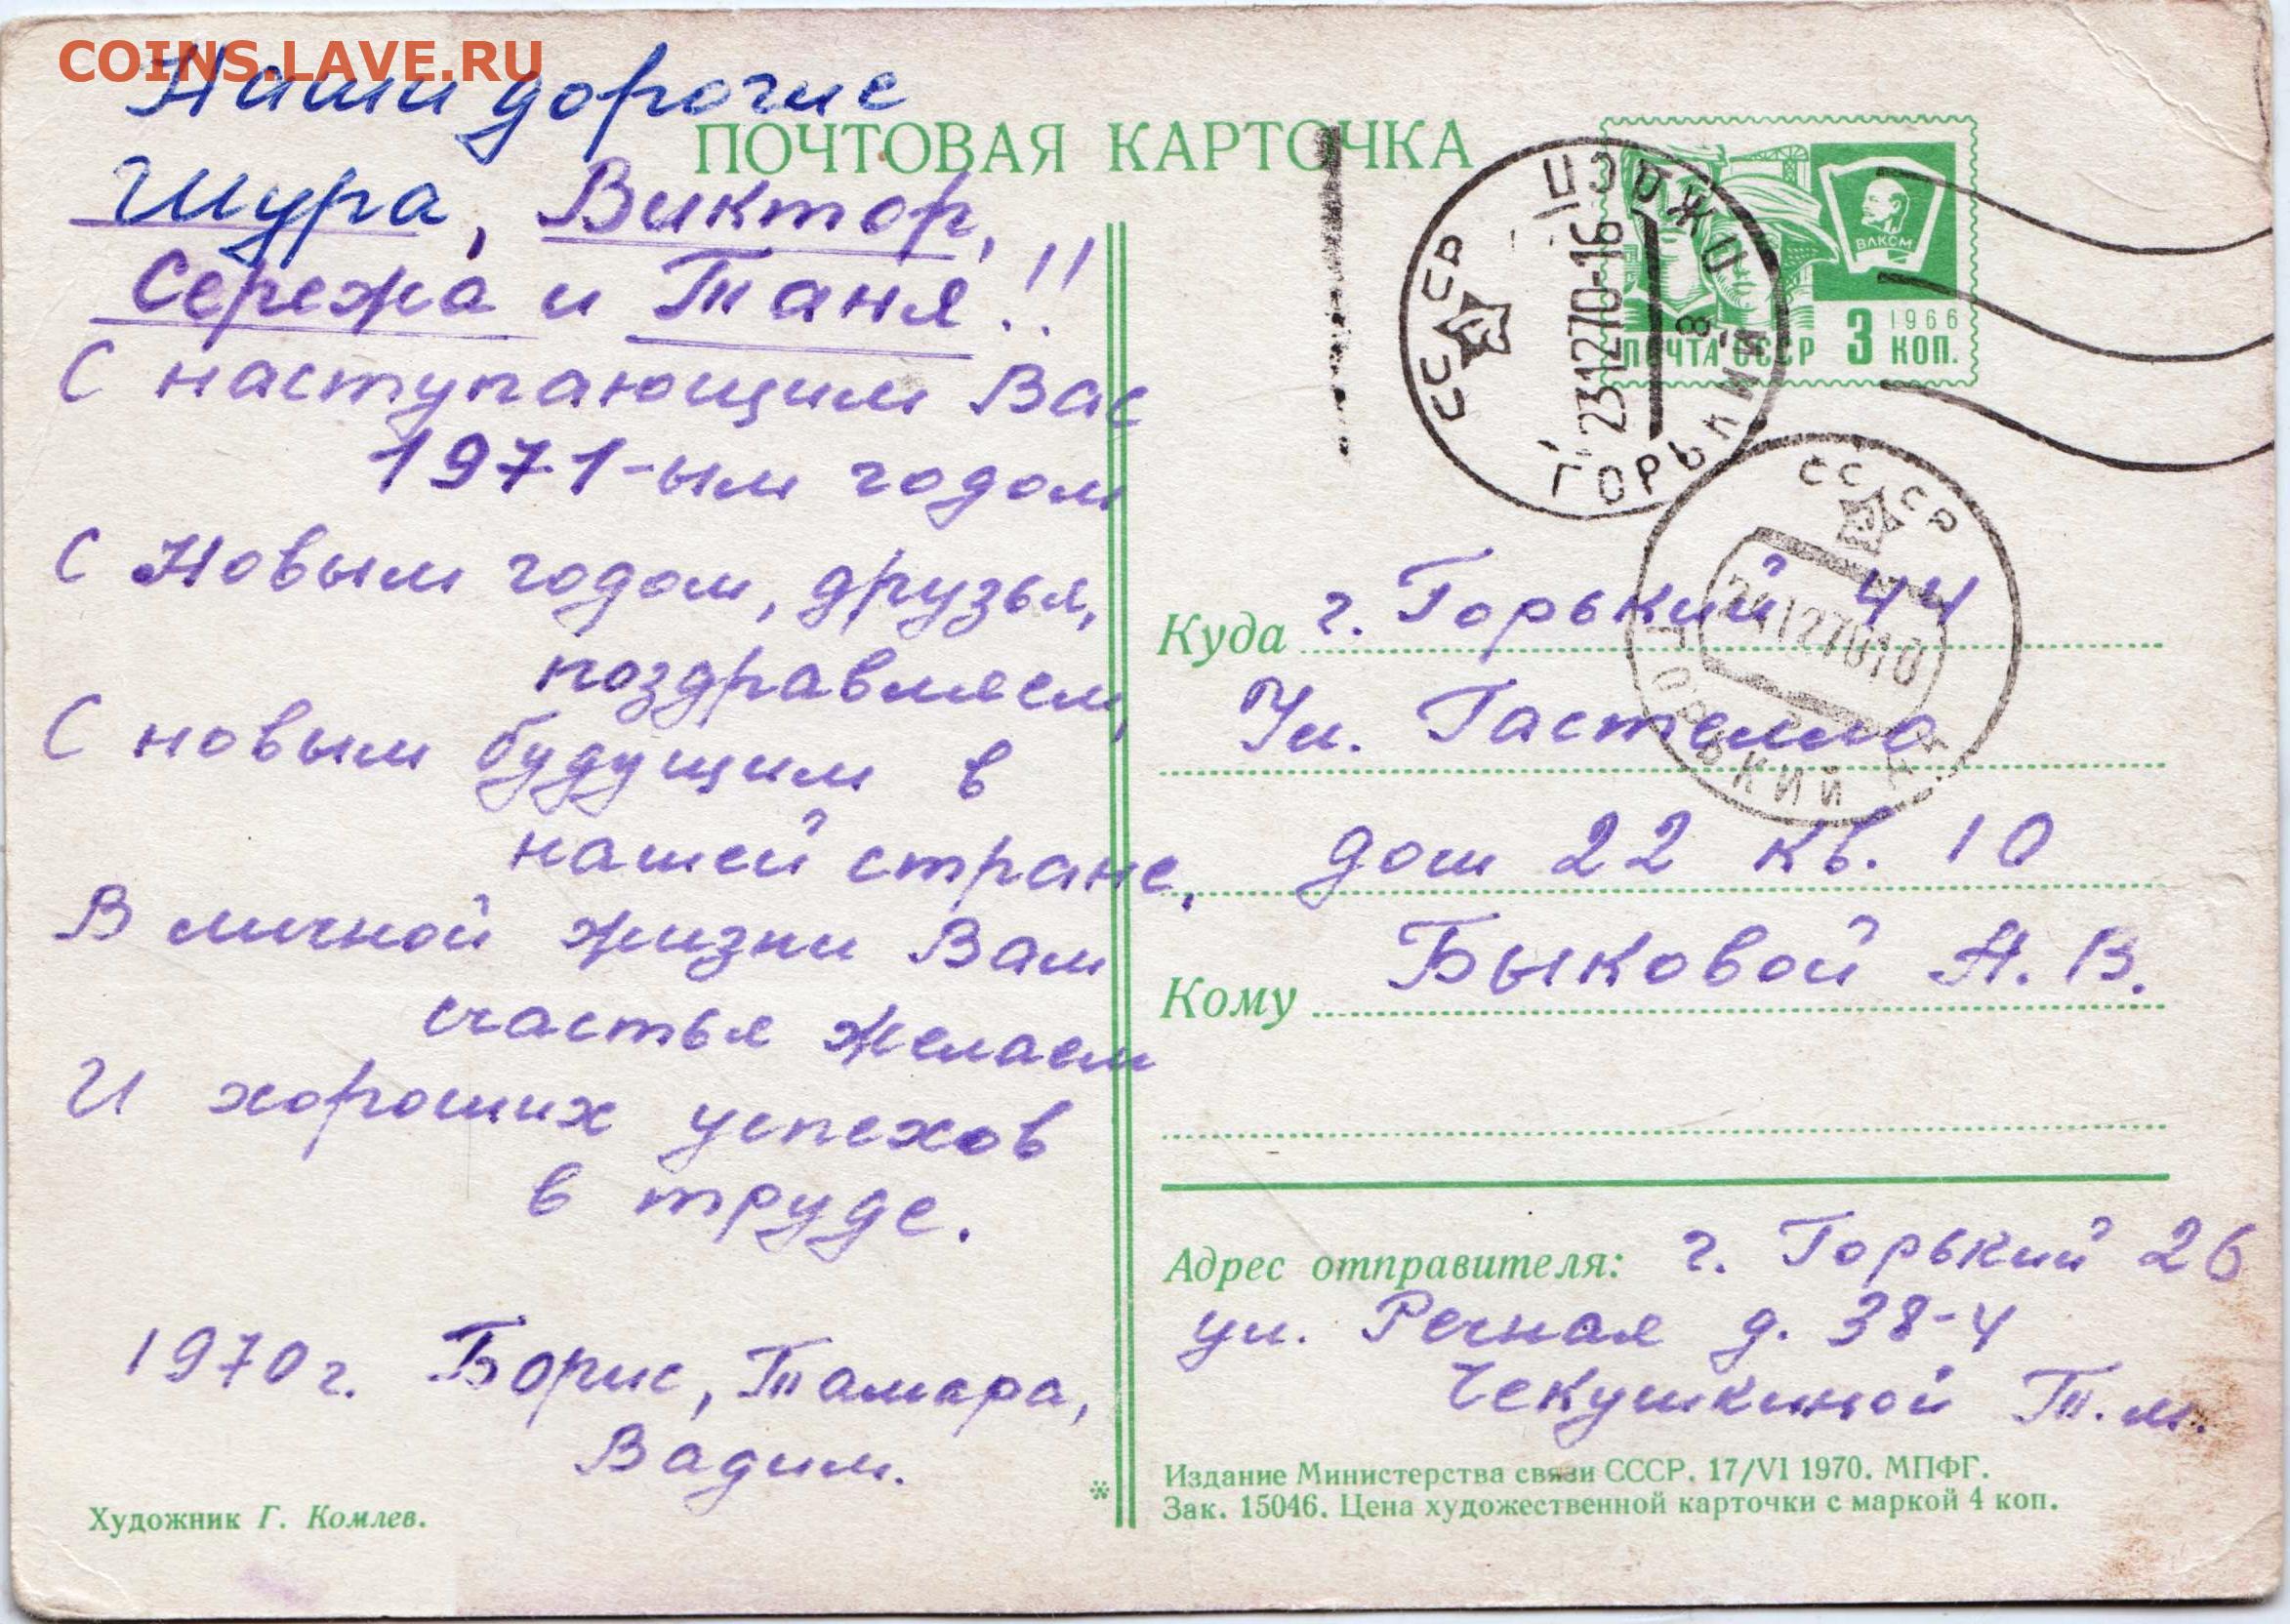 COINS.LAVE.RU
Наши дорогие
Шура, Виктор,
Сережа и Таня!!
С наступающим Вас
1971-ым годом
С Новым годом, друзья,
поздравляем,
С новым будущим в
нашей стране,
В личной жизни Вам
счастья желаем
И хороших успехов
в труде.
1970 г. Борис, Тамара,
Вадим.
Художник Г. Комлев.
ПОЧТОВАЯ КАРТОЧКА
ВЛКСМ
1966
ПОЧТА СССР 3 КОП.
СССР
ГОРЬКИЙ
231270-16
8
СССР
ГОРЬКИЙ
Куда г. Горький 44
Ул. Гастелло
дом 22 кв. 10
Кому Быковой А. В.
Адрес отправителя: г. Горький 26
ул. Речная д. 38-4
Чекушкиной Т. М.
Издание Министерства связи СССР. 17/VI 1970. МПФГ.
Зак. 15046. Цена художественной карточки с маркой 4 коп.